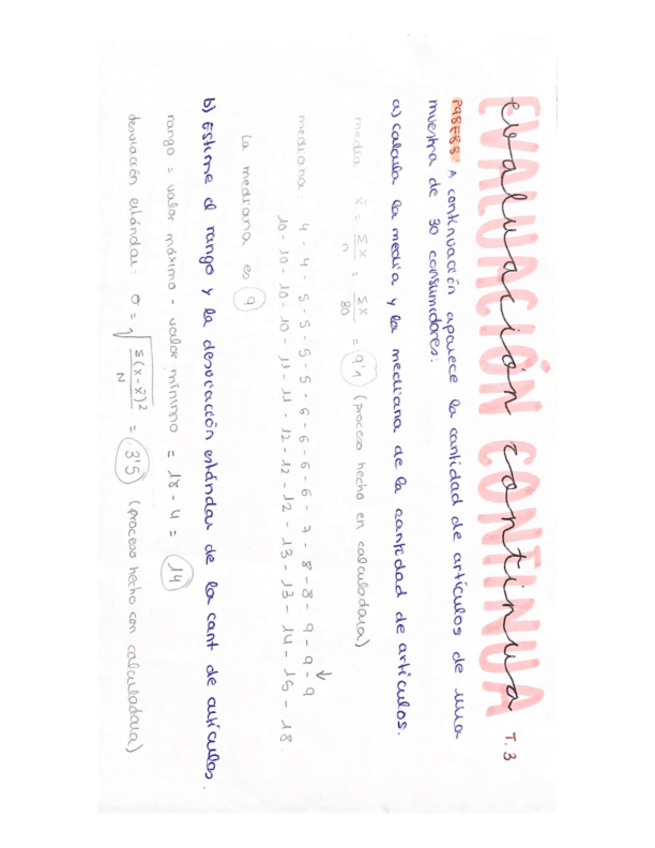 EVALUACIÓN CONTINUA
evaluación continua T.3
PÁGE83 A continuación aparece la cantidad de artículos de una
muestra de 30 consumidores:
a) calcula la media y la mediana de la cantidad de artículos.
media: x̄ = Σx/n = Σx/30 = 9'1 (proceso hecho en calculadora)
mediana: 4 - 4 - 5 - 5 - 5 - 5 - 6 - 6 - 6 - 6 - 7 - 8 - 8 - 9 - 9 - 9
10 - 10 - 10 - 10 - 11 - 11 - 12 - 12 - 12 - 13 - 13 - 14 - 15 - 18.
La mediana es 9
b) Estime el rango y la desviación estándar de la cant de artículos.
rango = valor máximo - valor mínimo = 18 - 4 = 14
desviación estándar: σ = √Σ(x-x̄)²/N = 3'5 (proceso hecho con calculadora)